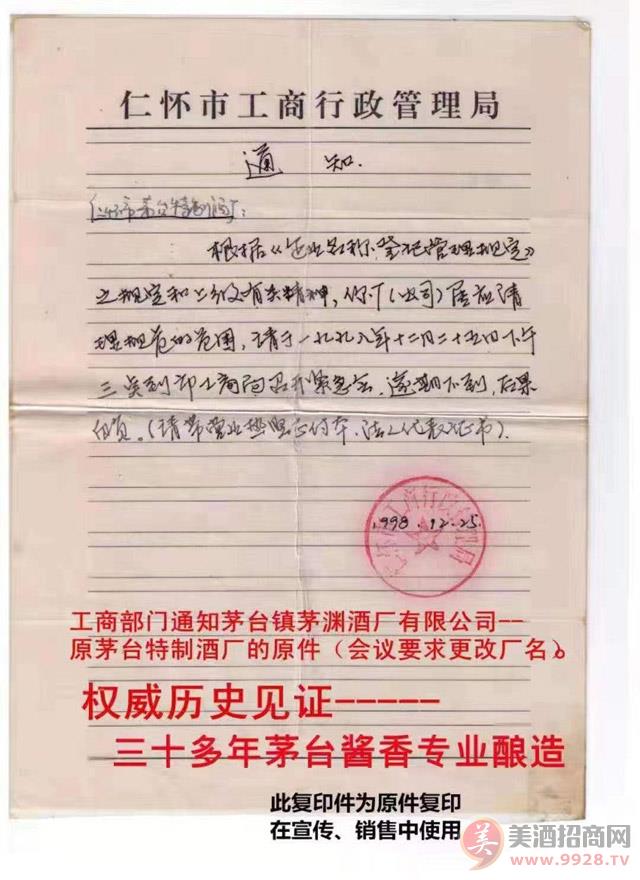 仁怀市工商行政管理局
通 知.
仁怀市茅台特制酒厂:
根据《企业名称登记管理规定》
之规定和上级有关精神,你厂(公司)属应清
理规范的范围,请于一九九八年十二月二十五日下午
三点到市工商局召开紧急会,逾期不到,后果
自负。(请带营业执照正付本、法人代表证书).
1998.12.25.
仁怀市工商行政管理局
工商部门通知茅台镇茅渊酒厂有限公司--
原茅台特制酒厂的原件(会议要求更改厂名)。
权威历史见证-----
三十多年茅台酱香专业酿造
此复印件为原件复印
在宣传、销售中使用
美 美酒招商网
www.9928.TV